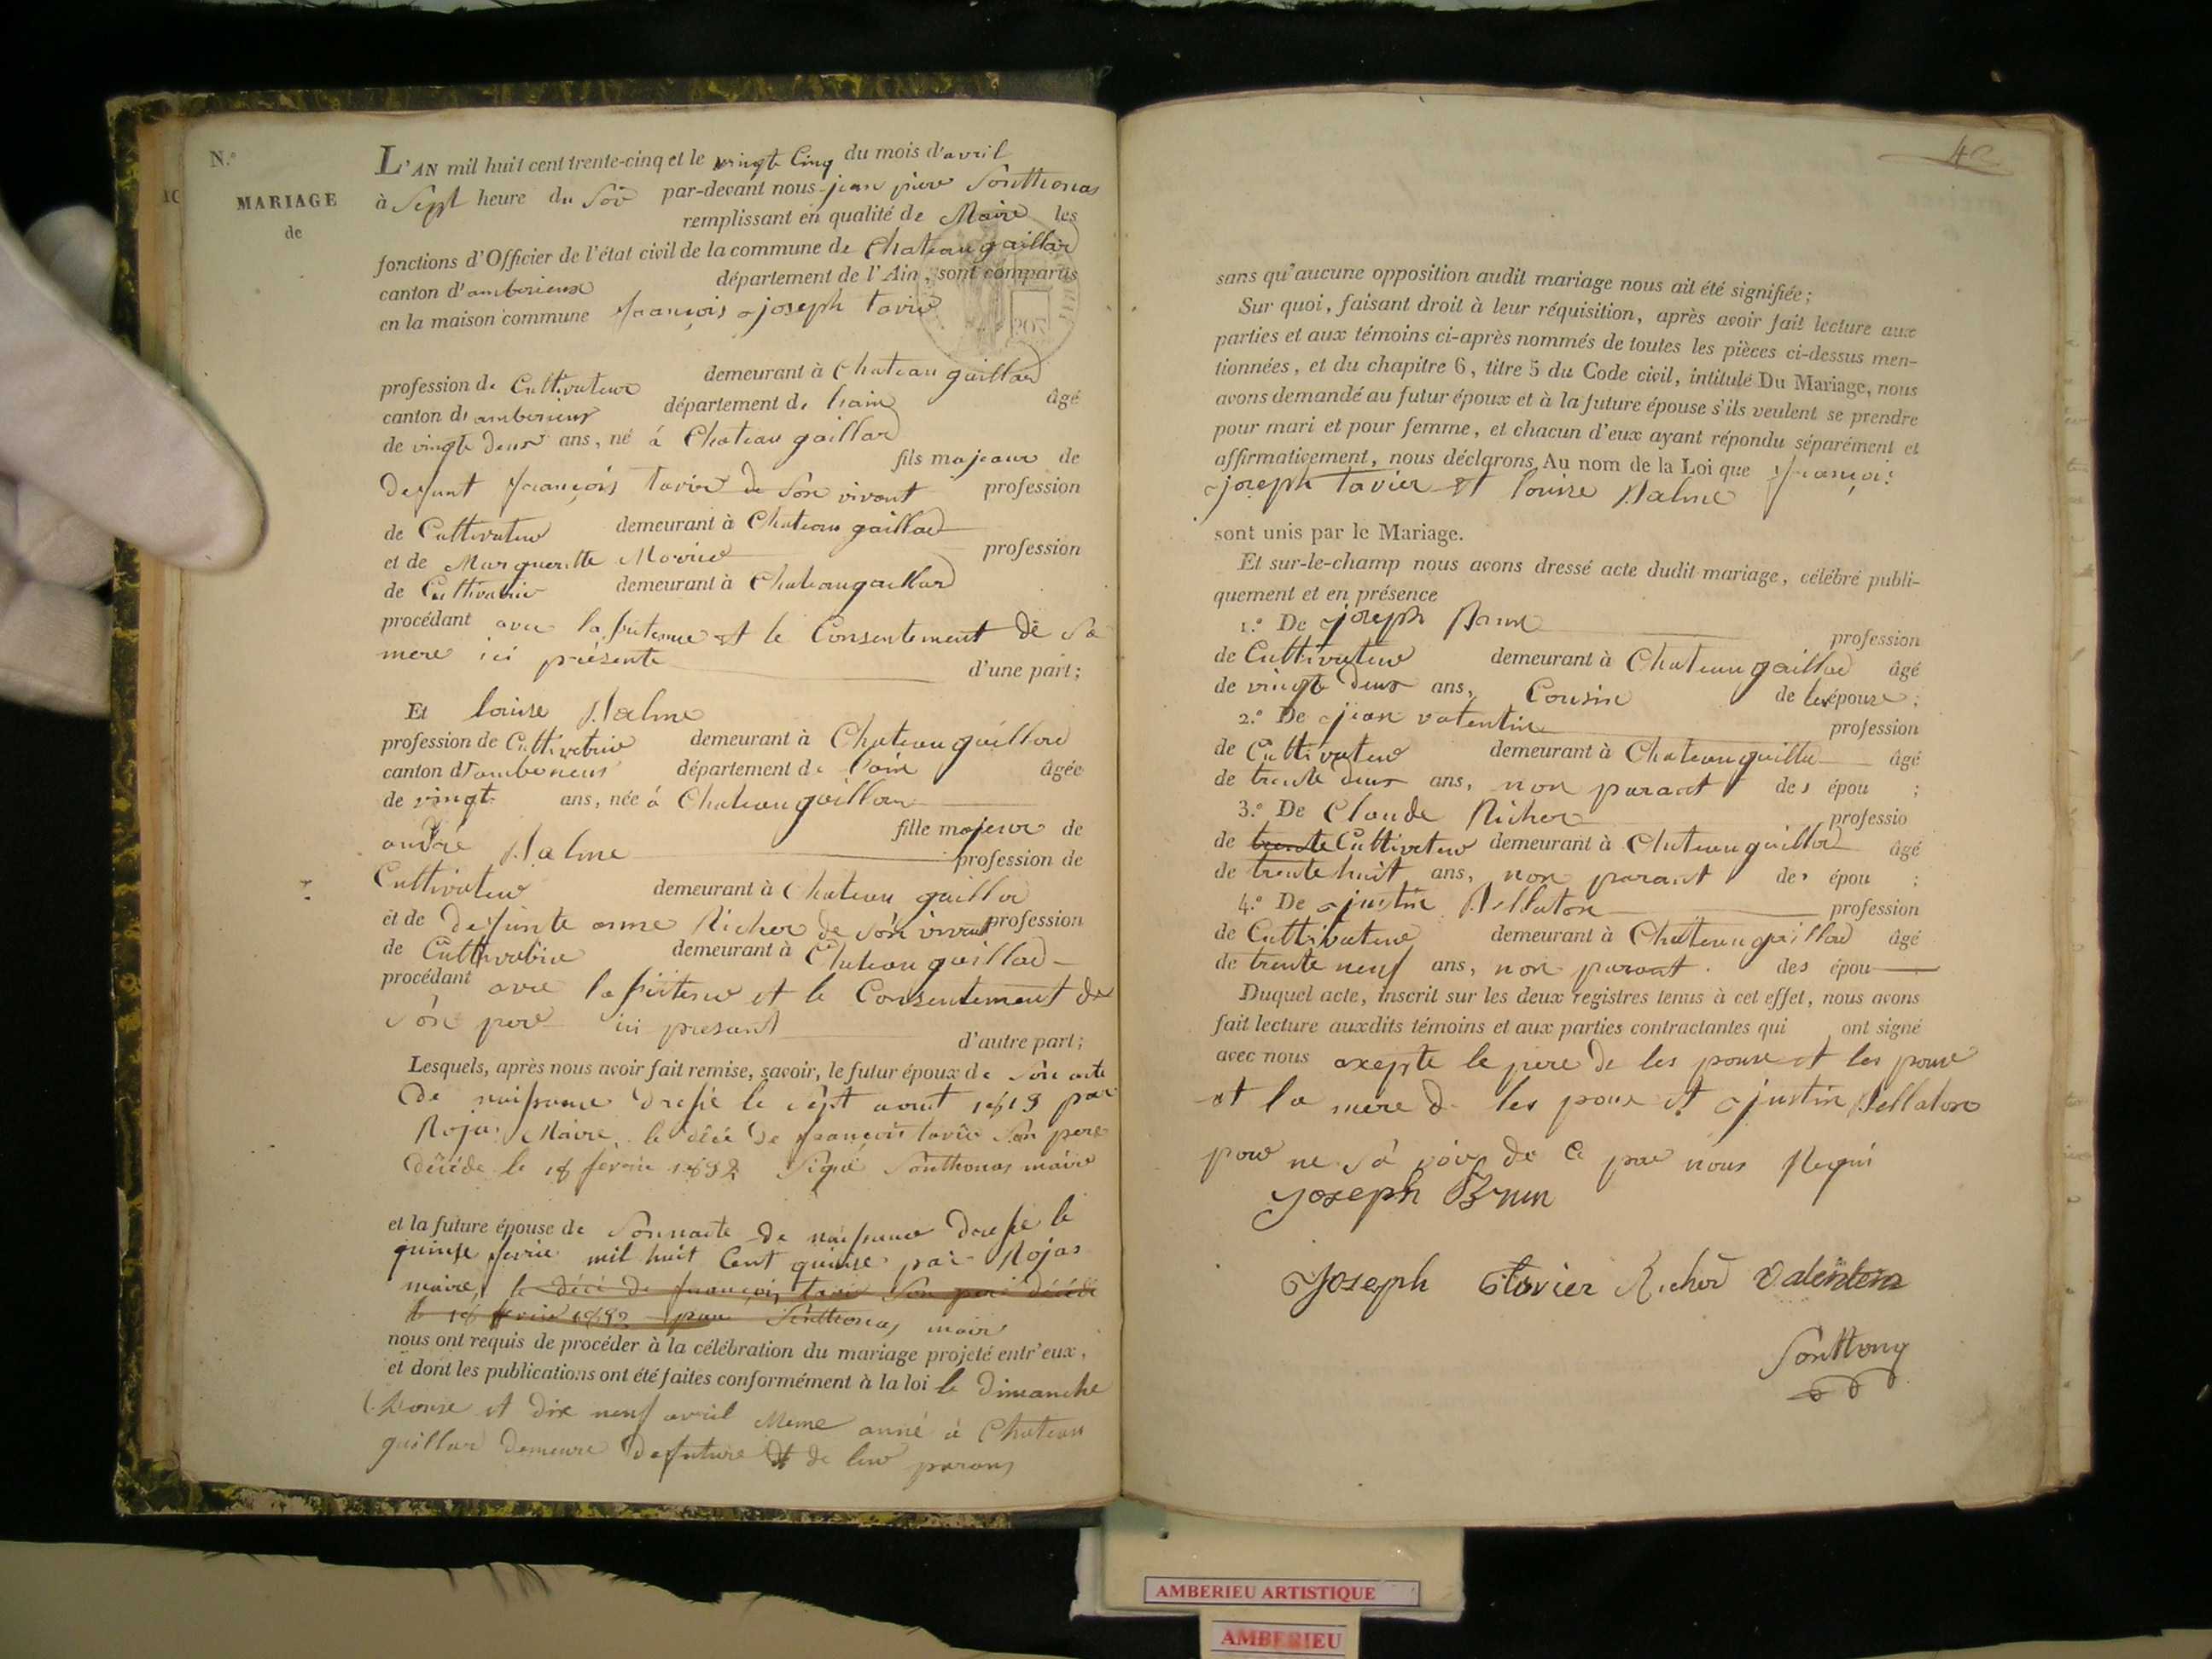 N.º
MARIAGE
de
L'AN mil huit cent trente-cinq et le vingt Cinq du mois d'avril
à Sept heure du Soir par-devant nous jean piere Sonthonas
remplissant en qualité de Maire les
fonctions d'Officier de l'état civil de la commune de Chateau gaillard
canton d'amberieux département de l'Ain, sont comparus
en la maison commune françois joseph tavier
profession de Cultivateur demeurant à Chateau gaillard
canton d'amberieux département de l'ain âgé
de vingt deux ans, né à Chateau gaillard
fils majeur de
defunt françois tavier de Son vivant profession
de Cultivateur demeurant à Chateau gaillard
et de Margueritte profession
de Cultivatrice demeurant à Chateaugaillard
procédant avec la et le Consentement de Sa
mere ici présente d'une part;
Et louise
profession de Cultivatrice demeurant à Chateau gaillard
canton d'amberieux département de l'ain âgée
de vingt ans, née à Chateau gaillard
fille majeure de
andré profession de
Cultivateur demeurant à Chateau gaillard
et de defunte anne Richer de Son vivant profession
de Cultivatrice demeurant à Chateau gaillard
procédant avec la et le Consentement de
Son pere ici present d'autre part;
Lesquels, après nous avoir fait remise, savoir, le futur époux de Son acte
de naissance dressé le Sept aout 1813 par
Rojas Maire, le décé de françois tavier Son pere
décédé le 18 fevrier 1832 Signé Sonthonas maire
et la future épouse de Sonnacte de naissance dressé le
quinse fevrier mil huit Cent quinse par Rojas
maire, le décé de françois tavier Son pere décédé
le 18 fevrier 1832 par Sonthonas maire
nous ont requis de procéder à la célébration du mariage projeté entr'eux,
et dont les publications ont été faites conformément à la loi le dimanche
douse et dix neuf avril meme anné à Chateau
gaillard demeure de future et de leur parans
42
sans qu'aucune opposition audit mariage nous ait été signifiée;
Sur quoi, faisant droit à leur réquisition, après avoir fait lecture aux
parties et aux témoins ci-après nommés de toutes les pièces ci-dessus men-
tionnées, et du chapitre 6, titre 5 du Code civil, intitulé Du Mariage, nous
avons demandé au futur époux et à la future épouse s'ils veulent se prendre
pour mari et pour femme, et chacun d'eux ayant répondu séparément et
affirmativement, nous déclarons Au nom de la Loi que françois
joseph tavier et louise
sont unis par le Mariage.
Et sur-le-champ nous avons dressé acte dudit mariage, célébré publi-
quement et en présence
1.º De joseph Brun profession
de Cultivateur demeurant à Chateau gaillard âgé
de vingt deux ans, Cousin de l'épouse;
2.º De jean valentin profession
de Cultivateur demeurant à Chateau gaillar âgé
de trente deux ans, non parant des épou ;
3.º De Claude Richer professio
de trente Cultivateur demeurant à Chateau gaillard âgé
de trente huit ans, non parant des épou ;
4.º De justin Pellaton profession
de Cultivateur demeurant à Chateau gaillard âgé
de trente neuf ans, non parant. des épou
Duquel acte, inscrit sur les deux registres tenus à cet effet, nous avons
fait lecture auxdits témoins et aux parties contractantes qui ont signé
avec nous axepte le pere de les pouse et les pouse
et la mere de les poux et justin Pellaton
pour ne Sa voir de Ce par nous Requi
Joseph Brun
Joseph Tavier Richer Valentin
Sonthonas
AMBERIEU ARTISTIQUE
AMBERIEU